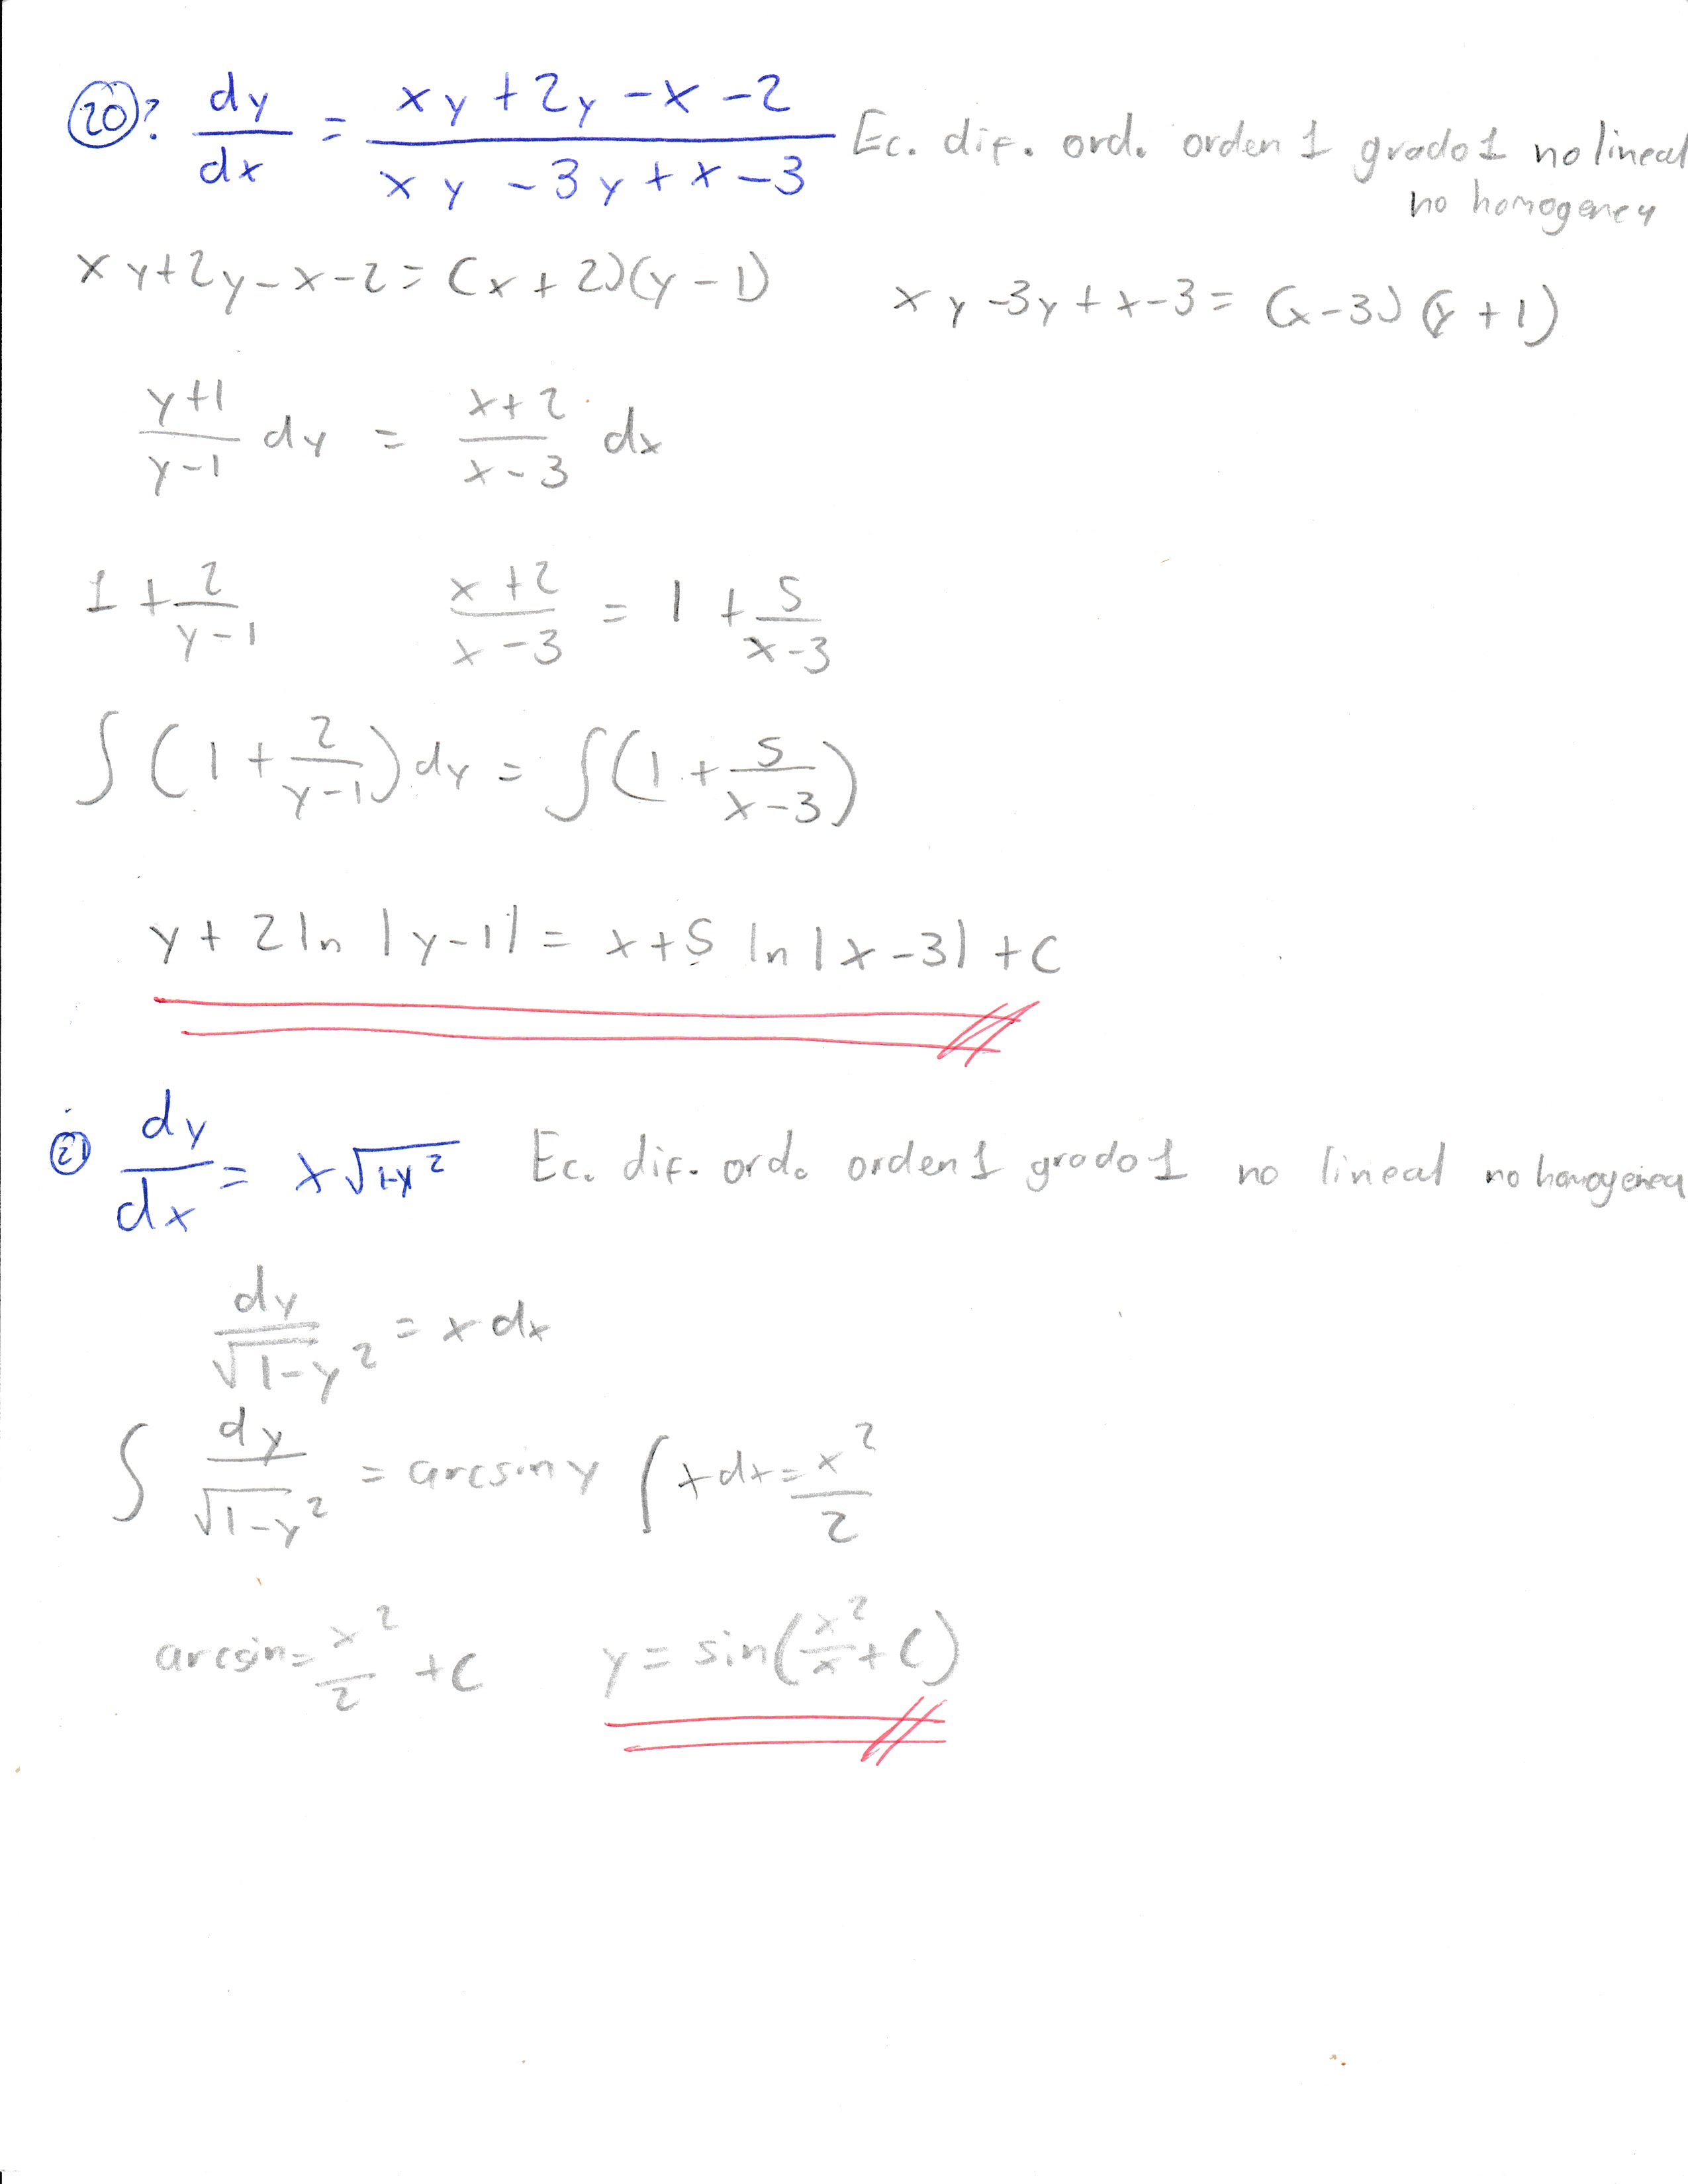 20? dy/dx = (xy + 2y - x - 2)/(xy - 3y + x - 3) Ec. dif. ord. orden 1 grado 1 no lineal
no homogenea
xy+2y-x-2 = (x+2)(y-1) xy-3y+x-3 = (x-3)(y+1)
(y+1)/(y-1) dy = (x+2)/(x-3) dx
1 + 2/(y-1) (x+2)/(x-3) = 1 + 5/(x-3)
∫(1 + 2/(y-1)) dy = ∫(1 + 5/(x-3))
y + 2 ln |y-1| = x + 5 ln |x-3| + C
21 dy/dx = x√(1-y²) Ec. dif. ord. orden 1 grado 1 no lineal no homogenea
dy/√(1-y²) = x dx
∫ dy/√(1-y²) = arcsin y ∫ x dx = x²/2
arcsin = x²/2 + C y = sin(x²/x + C)